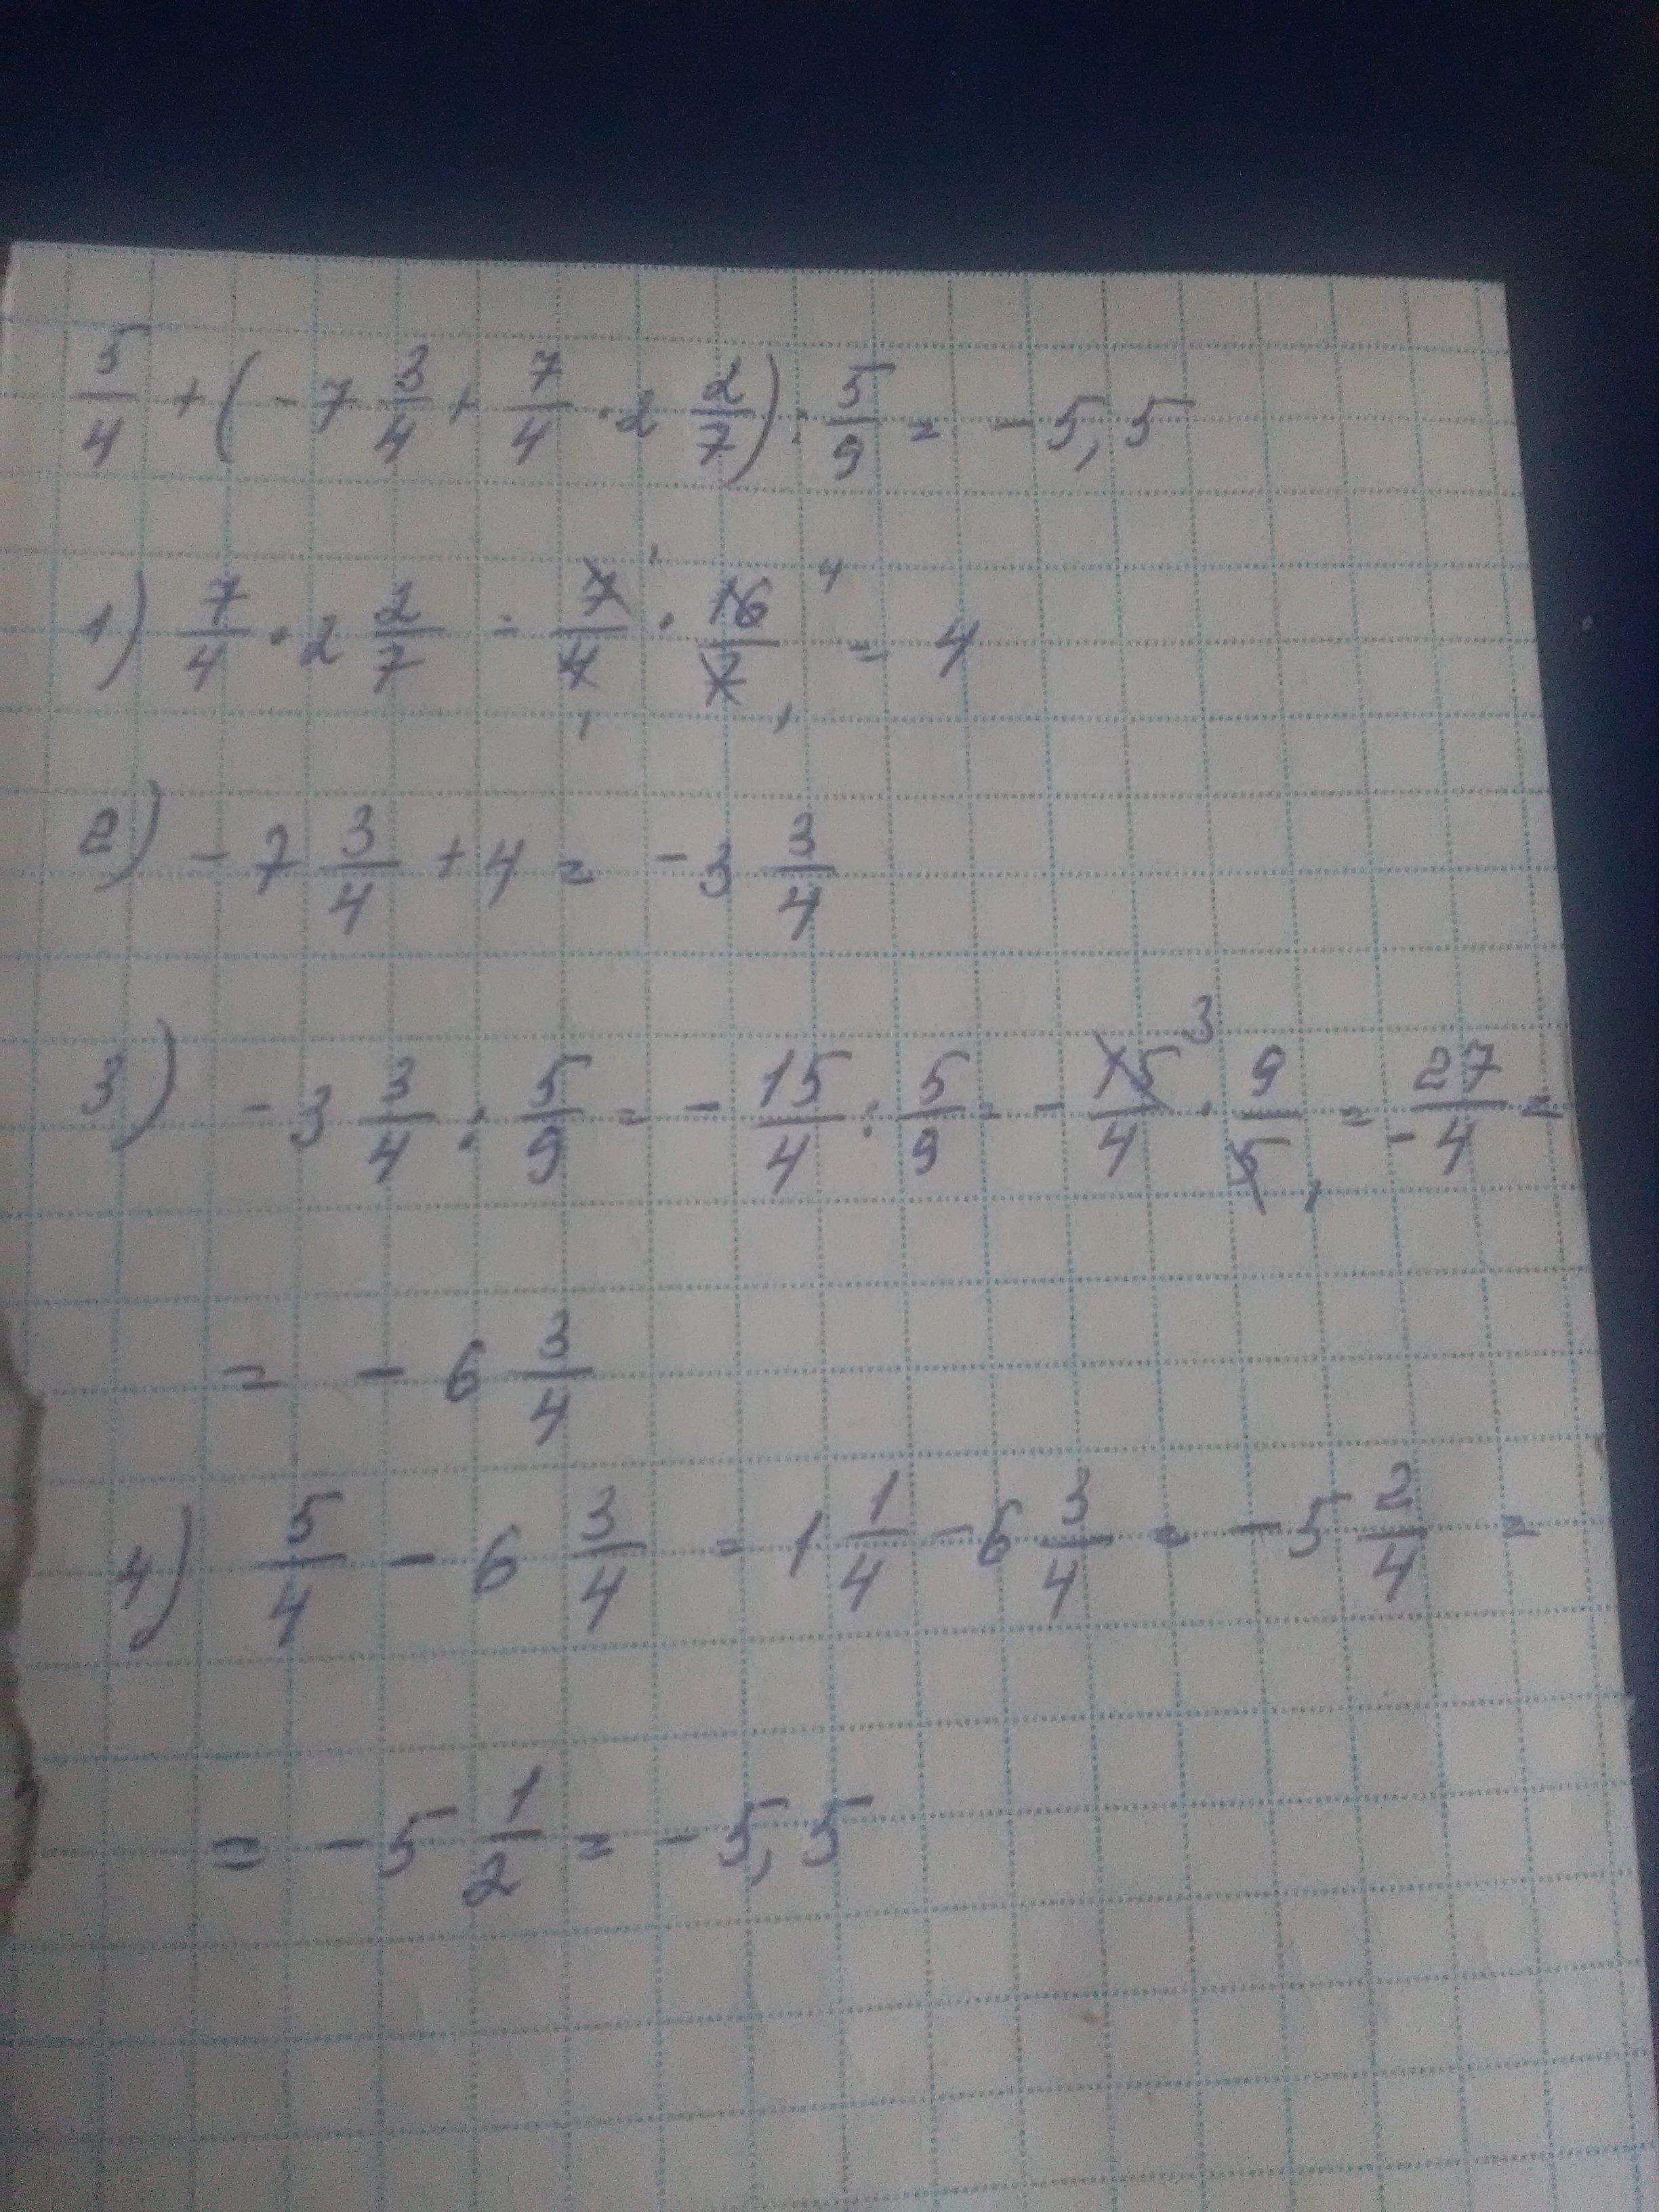 5/4 + (- 7 3/4 + 7/4 · 2 2/7) : 5/9 = - 5,5
1) 7/4 · 2 2/7 = 7/4 · 16/7 = 4
2) - 7 3/4 + 4 = - 3 3/4
3) - 3 3/4 : 5/9 = - 15/4 : 5/9 = - 15/4 · 9/5 = - 27/4 =
= - 6 3/4
4) 5/4 - 6 3/4 = 1 1/4 - 6 3/4 = - 5 2/4 =
= - 5 1/2 = - 5,5